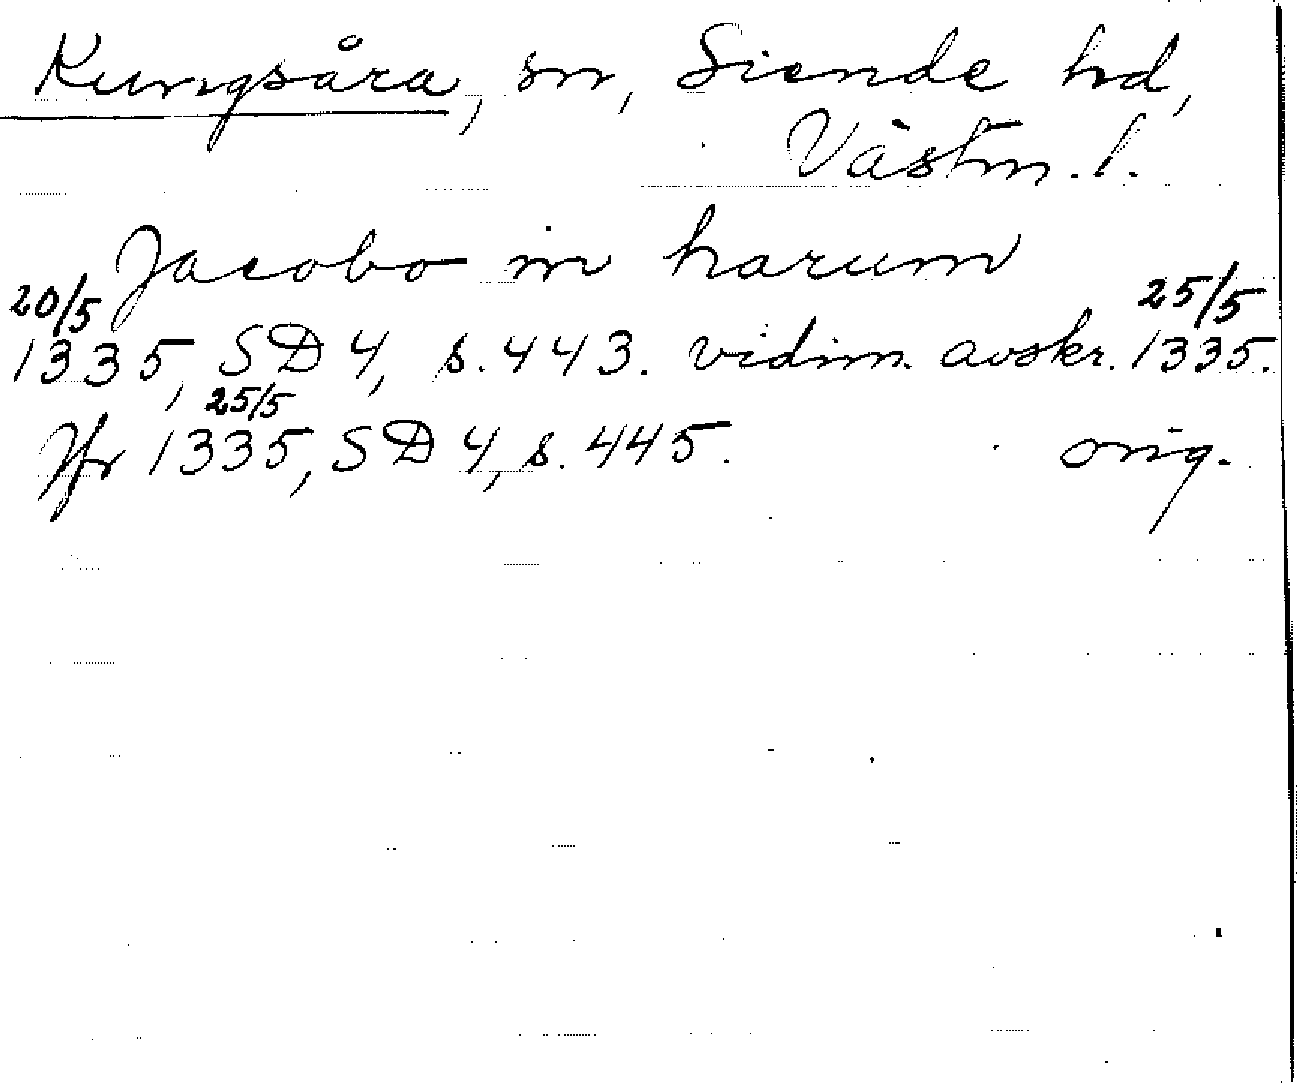 Kungsåra, sn, Siende hd,
Västm. l.
Jacobo in harum
20/5 25/5
1335, SD 4, s. 443. vidim. avskr. 1335.
25/5
Jfr 1335, SD 4, s. 445. orig.